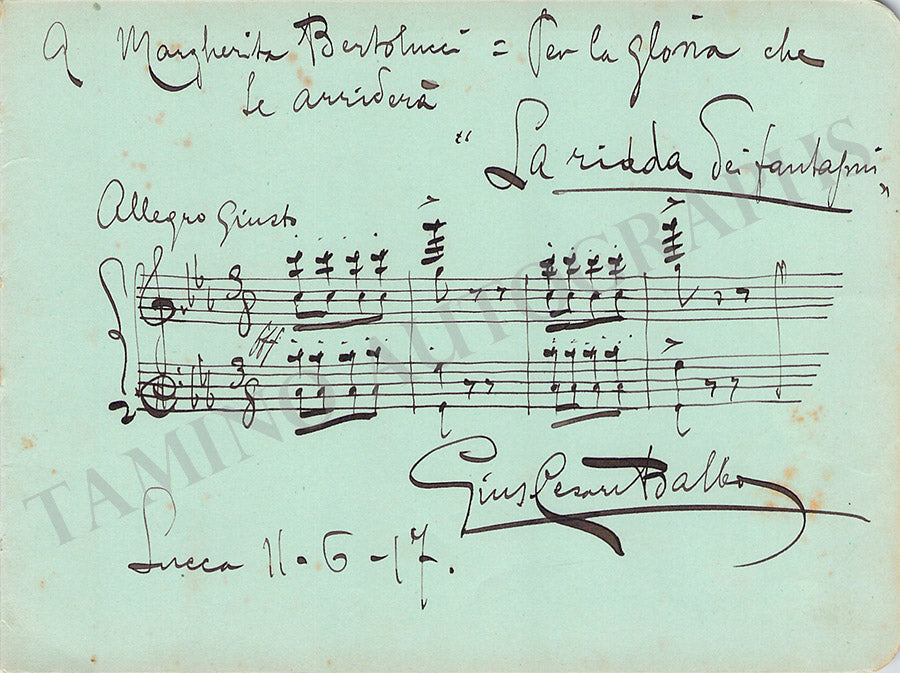 A Margherita Bertolucci = Per la gloria che
le arriderà
"La ridda dei fantasmi"
Allegro Giusto
3
8
fff
3
8
Gius Cesare Balbo
Lucca 11-6-17.
TAMINO AUTOGRAPHS